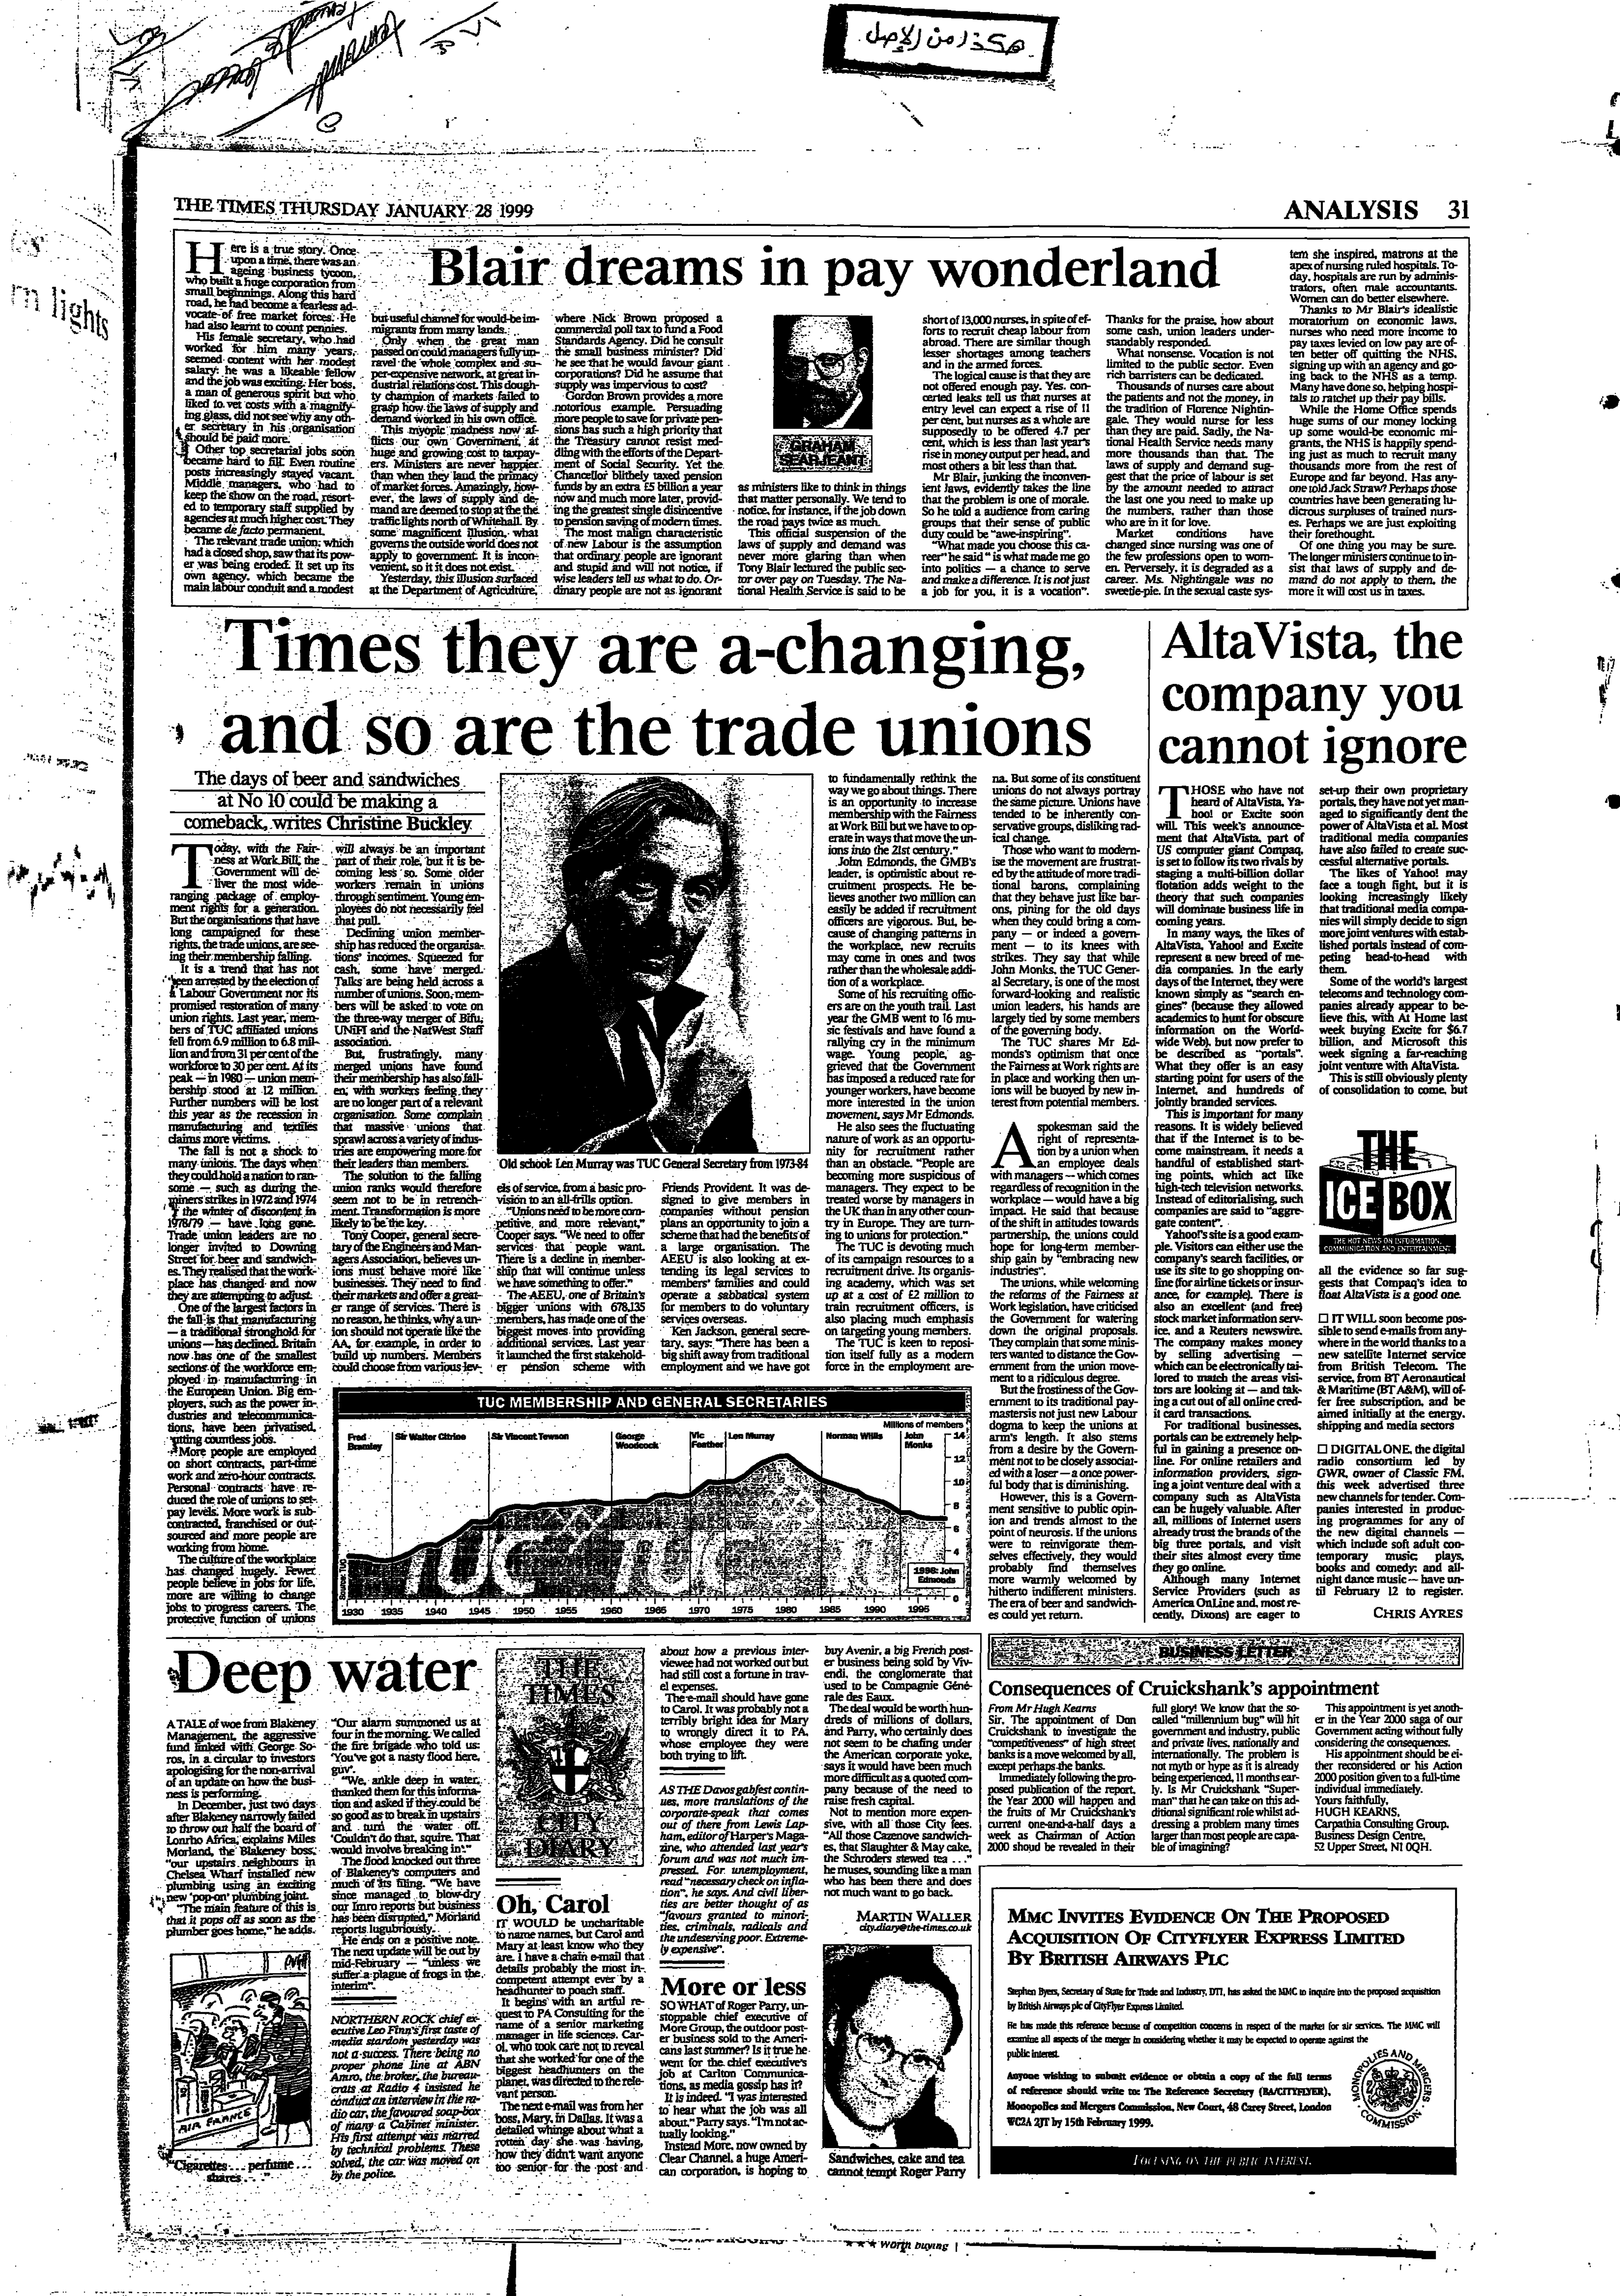 هكذا من الاصل
rn lights
THE TIMES THURSDAY JANUARY 28 1999
ANALYSIS 31
Blair dreams in pay wonderland
Here is a true story. Once
upon a time, there was an
ageing business tycoon,
who built a huge corporation from
small beginnings. Along this hard
road, he had become a fearless ad-
vocate of free market forces. He
had also learnt to count pennies.
His female secretary, who had
worked for him many years,
seemed content with her modest
salary: he was a likeable fellow
and the job was exciting. Her boss,
a man of generous spirit but who
liked to vet costs with a magnify-
ing glass, did not see why any oth-
er secretary in his organisation
should be paid more.
Other top secretarial jobs soon
became hard to fill. Even routine
posts increasingly stayed vacant.
Middle managers, who had to
keep the show on the road, resort-
ed to temporary staff supplied by
agencies at much higher cost. They
became de facto permanent.
The relevant trade union, which
had a closed shop, saw that its pow-
er was being eroded. It set up its
own agency, which became the
main labour conduit and a modest
but useful channel for would-be im-
migrants from many lands.
Only when the great man
passed on could managers fully un-
ravel the whole complex and su-
per-expensive network, at great in-
dustrial relations cost. This dough-
ty champion of markets failed to
grasp how the laws of supply and
demand worked in his own office.
This myopic madness now af-
flicts our own Government, at
huge and growing cost to taxpay-
ers. Ministers are never happier
than when they laud the primacy
of market forces. Amazingly, how-
ever, the laws of supply and de-
mand are deemed to stop at the
traffic lights north of Whitehall. By
some magnificent illusion, what
governs the outside world does not
apply to government. It is incon-
venient, so it it does not exist.
Yesterday, this illusion surfaced
at the Department of Agriculture,
where Nick Brown proposed a
commercial poll tax to fund a Food
Standards Agency. Did he consult
the small business minister? Did
he see that he would favour giant
corporations? Did he assume that
supply was impervious to cost?
Gordon Brown provides a more
notorious example. Persuading
more people to save for private pen-
sions has such a high priority that
the Treasury cannot resist med-
dling with the efforts of the Depart-
ment of Social Security. Yet the
Chancellor blithely taxed pension
funds by an extra £5 billion a year
now and much more later, provid-
ing the greatest single disincentive
to pension saving of modern times.
The most malign characteristic
of new Labour is the assumption
that ordinary people are ignorant
and stupid and will not notice, if
wise leaders tell us what to do. Or-
dinary people are not as ignorant
GRAHAM
SEARJEANT
as ministers like to think in things
that matter personally. We tend to
notice, for instance, if the job down
the road pays twice as much.
This official suspension of the
laws of supply and demand was
never more glaring than when
Tony Blair lectured the public sec-
tor over pay on Tuesday. The Na-
tional Health Service is said to be
short of 13,000 nurses, in spite of ef-
forts to recruit cheap labour from
abroad. There are similar though
lesser shortages among teachers
and in the armed forces.
The logical cause is that they are
not offered enough pay. Yes, con-
certed leaks tell us that nurses at
entry level can expect a rise of 11
per cent, but nurses as a whole are
supposedly to be offered 4.7 per
cent, which is less than last year's
rise in money output per head, and
most others a bit less than that.
Mr Blair, junking the inconven-
ient laws, evidently takes the line
that the problem is one of morale.
So he told a audience from caring
groups that their sense of public
duty could be "awe-inspiring".
"What made you choose this ca-
reer" he said "is what made me go
into politics — a chance to serve
and make a difference. It is not just
a job for you, it is a vocation".
Thanks for the praise, how about
some cash, union leaders under-
standably responded.
What nonsense. Vocation is not
limited to the public sector. Even
rich barristers can be dedicated.
Thousands of nurses care about
the patients and not the money, in
the tradition of Florence Nightin-
gale. They would nurse for less
than they are paid. Sadly, the Na-
tional Health Service needs many
more thousands than that. The
laws of supply and demand sug-
gest that the price of labour is set
by the amount needed to attract
the last one you need to make up
the numbers, rather than those
who are in it for love.
Market conditions have
changed since nursing was one of
the few professions open to wom-
en. Perversely, it is degraded as a
career. Ms. Nightingale was no
sweetie-pie. In the sexual caste sys-
tem she inspired, matrons at the
apex of nursing ruled hospitals. To-
day, hospitals are run by adminis-
trators, often male accountants.
Women can do better elsewhere.
Thanks to Mr Blair's idealistic
moratorium on economic laws,
nurses who need more income to
pay taxes levied on low pay are of-
ten better off quitting the NHS,
signing up with an agency and go-
ing back to the NHS as a temp.
Many have done so, helping hospi-
tals to ratchet up their pay bills.
While the Home Office spends
huge sums of our money locking
up some would-be economic mi-
grants, the NHS is happily spend-
ing just as much to recruit many
thousands more from the rest of
Europe and far beyond. Has any-
one told Jack Straw? Perhaps those
countries have been generating lu-
dicrous surpluses of trained nurs-
es. Perhaps we are just exploiting
their forethought.
Of one thing you may be sure.
The longer ministers continue to in-
sist that laws of supply and de-
mand do not apply to them, the
more it will cost us in taxes.
Times they are a-changing,
and so are the trade unions
The days of beer and sandwiches
at No 10 could be making a
comeback, writes Christine Buckley
Today, with the Fair-
ness at Work Bill, the
Government will de-
liver the most wide-
ranging package of employ-
ment rights for a generation.
But the organisations that have
long campaigned for these
rights, the trade unions, are see-
ing their membership falling.
It is a trend that has not
been arrested by the election of
a Labour Government nor its
promised restoration of many
union rights. Last year, mem-
bers of TUC affiliated unions
fell from 6.9 million to 6.8 mil-
lion and from 31 per cent of the
workforce to 30 per cent. At its
peak — in 1980 — union mem-
bership stood at 12 million.
Further numbers will be lost
this year as the recession in
manufacturing and textiles
claims more victims.
The fall is not a shock to
many unions. The days when
they could hold a nation to ran-
some — such as during the
miners strikes in 1972 and 1974
the winter of discontent in
1978/79 — have long gone.
Trade union leaders are no
longer invited to Downing
Street for beer and sandwich-
es. They realised that the work-
place has changed and now
they are attempting to adjust.
One of the largest factors in
the fall is that manufacturing
— a traditional stronghold for
unions — has declined. Britain
now has one of the smallest
sections of the workforce em-
ployed in manufacturing in
the European Union. Big em-
ployers, such as the power in-
dustries and telecommunica-
tions, have been privatised,
cutting countless jobs.
More people are employed
on short contracts, part-time
work and zero-hour contracts.
Personal contracts have re-
duced the role of unions to set-
pay levels. More work is sub-
contracted, franchised or out-
sourced and more people are
working from home.
The culture of the workplace
has changed hugely. Fewer
people believe in jobs for life,
more are willing to change
jobs to progress careers. The
protective function of unions
will always be an important
part of their role, but it is be-
coming less so. Some older
workers remain in unions
through sentiment. Young em-
ployees do not necessarily feel
that pull.
Declining union member-
ship has reduced the organisa-
tions' incomes. Squeezed for
cash, some have merged.
Talks are being held across a
number of unions. Soon, mem-
bers will be asked to vote on
the three-way merger of Bifu,
UNiFI and the NatWest Staff
association.
But, frustratingly, many
merged unions have found
their membership has also fall-
en; with workers feeling they
are no longer part of a relevant
organisation. Some complain
that massive unions that
sprawl across a variety of indus-
tries are empowering more for
their leaders than members.
The solution to the falling
union ranks would therefore
seem not to be in retrench-
ment. Transformation is more
likely to be the key.
Tony Cooper, general secre-
tary of the Engineers and Man-
agers Association, believes un-
ions must behave more like
businesses. They need to find
their markets and offer a great-
er range of services. There is
no reason, he thinks, why a un-
ion should not operate like the
AA, for example, in order to
build up numbers. Members
could choose from various lev-
Old school: Len Murray was TUC General Secretary from 1973-84
els of service, from a basic pro-
vision to an all-frills option.
"Unions need to be more com-
petitive, and more relevant,"
Cooper says. "We need to offer
services that people want.
There is a decline in member-
ship that will continue unless
we have something to offer."
The AEEU, one of Britain's
bigger unions with 678,135
members, has made one of the
biggest moves into providing
additional services. Last year
it launched the first stakehold-
er pension scheme with
Friends Provident. It was de-
signed to give members in
companies without pension
plans an opportunity to join a
scheme that had the benefits of
a large organisation. The
AEEU is also looking at ex-
tending its legal services to
members' families and could
operate a sabbatical system
for members to do voluntary
services overseas.
Ken Jackson, general secre-
tary, says: "There has been a
big shift away from traditional
employment and we have got
to fundamentally rethink the
way we go about things. There
is an opportunity to increase
membership with the Fairness
at Work Bill but we have to op-
erate in ways that move the un-
ions into the 21st century."
John Edmonds, the GMB's
leader, is optimistic about re-
cruitment prospects. He be-
lieves another two million can
easily be added if recruitment
officers are vigorous. But, be-
cause of changing patterns in
the workplace, new recruits
may come in ones and twos
rather than the wholesale addi-
tion of a workplace.
Some of his recruiting offic-
ers are on the youth trail. Last
year the GMB went to 16 mu-
sic festivals and have found a
rallying cry in the minimum
wage. Young people, ag-
grieved that the Government
has imposed a reduced rate for
younger workers, have become
more interested in the union
movement, says Mr Edmonds.
He also sees the fluctuating
nature of work as an opportu-
nity for recruitment rather
than an obstacle. "People are
becoming more suspicious of
managers. They expect to be
treated worse by managers in
the UK than in any other coun-
try in Europe. They are turn-
ing to unions for protection."
The TUC is devoting much
of its campaign resources to a
recruitment drive. Its organis-
ing academy, which was set
up at a cost of £2 million to
train recruitment officers, is
also placing much emphasis
on targeting young members.
The TUC is keen to reposi-
tion itself fully as a modern
force in the employment are-
na. But some of its constituent
unions do not always portray
the same picture. Unions have
tended to be inherently con-
servative groups, disliking rad-
ical change.
Those who want to modern-
ise the movement are frustrat-
ed by the attitude of more tradi-
tional barons, complaining
that they behave just like bar-
ons, pining for the old days
when they could bring a com-
pany — or indeed a govern-
ment — to its knees with
strikes. They say that while
John Monks, the TUC Gener-
al Secretary, is one of the most
forward-looking and realistic
union leaders, his hands are
largely tied by some members
of the governing body.
The TUC shares Mr Ed-
monds's optimism that once
the Fairness at Work rights are
in place and working then un-
ions will be buoyed by new in-
terest from potential members.
A spokesman said the
right of representa-
tion by a union when
an employee deals
with managers — which comes
regardless of recognition in the
workplace — would have a big
impact. He said that because
of the shift in attitudes towards
partnership, the unions could
hope for long-term member-
ship gain by "embracing new
industries".
The unions, while welcoming
the reforms of the Fairness at
Work legislation, have criticised
the Government for watering
down the original proposals.
They complain that some minis-
ters wanted to distance the Gov-
ernment from the union move-
ment to a ridiculous degree.
But the frostiness of the Gov-
ernment to its traditional pay-
masters is not just new Labour
dogma to keep the unions at
arm's length. It also stems
from a desire by the Govern-
ment not to be closely associat-
ed with a loser — a once power-
ful body that is diminishing.
However, this is a Govern-
ment sensitive to public opin-
ion and trends almost to the
point of neurosis. If the unions
were to reinvigorate them-
selves effectively, they would
probably find themselves
more warmly welcomed by
hitherto indifferent ministers.
The era of beer and sandwich-
es could yet return.
TUC MEMBERSHIP AND GENERAL SECRETARIES
Millions of members
Fred Bramley
Sir Walter Citrine
Sir Vincent Tewson
George Woodcock
Vic Feather
Len Murray
Norman Willis
John Monks
14
12
10
8
6
4
0
1998: John Edmonds
Source: TUC
TUC
1930 1935 1940 1945 1950 1955 1960 1965 1970 1975 1980 1985 1990 1995
AltaVista, the
company you
cannot ignore
THOSE who have not
heard of AltaVista, Ya-
hoo! or Excite soon
will. This week's announce-
ment that AltaVista, part of
US computer giant Compaq,
is set to follow its two rivals by
staging a multi-billion dollar
flotation adds weight to the
theory that such companies
will dominate business life in
coming years.
In many ways, the likes of
AltaVista, Yahoo! and Excite
represent a new breed of me-
dia companies. In the early
days of the Internet, they were
known simply as "search en-
gines" (because they allowed
academics to hunt for obscure
information on the World-
wide Web), but now prefer to
be described as "portals".
What they offer is an easy
starting point for users of the
Internet, and hundreds of
jointly branded services.
This is important for many
reasons. It is widely believed
that if the Internet is to be-
come mainstream, it needs a
handful of established start-
ing points, which act like
high-tech television networks.
Instead of editorialising, such
companies are said to "aggre-
gate content".
Yahoo!'s site is a good exam-
ple. Visitors can either use the
company's search facilities, or
use its site to go shopping on-
line (for airline tickets or insur-
ance, for example). There is
also an excellent (and free)
stock market information serv-
ice, and a Reuters newswire.
The company makes money
by selling advertising —
which can be electronically tai-
lored to match the areas visi-
tors are looking at — and tak-
ing a cut out of all online cred-
it card transactions.
For traditional businesses,
portals can be extremely help-
ful in gaining a presence on-
line. For online retailers and
information providers, sign-
ing a joint venture deal with a
company such as AltaVista
can be hugely valuable. After
all, millions of Internet users
already trust the brands of the
big three portals, and visit
their sites almost every time
they go online.
Although many Internet
Service Providers (such as
America OnLine and, most re-
cently, Dixons) are eager to
set-up their own proprietary
portals, they have not yet man-
aged to significantly dent the
power of AltaVista et al. Most
traditional media companies
have also failed to create suc-
cessful alternative portals.
The likes of Yahoo! may
face a tough fight, but it is
looking increasingly likely
that traditional media compa-
nies will simply decide to sign
more joint ventures with estab-
lished portals instead of com-
peting head-to-head with
them.
Some of the world's largest
telecoms and technology com-
panies already appear to be-
lieve this, with At Home last
week buying Excite for $6.7
billion, and Microsoft this
week signing a far-reaching
joint venture with AltaVista.
This is still obviously plenty
of consolidation to come, but
THE
ICE BOX
THE HOT NEWS ON INFORMATION,
COMMUNICATION AND ENTERTAINMENT
all the evidence so far sug-
gests that Compaq's idea to
float AltaVista is a good one.
□ IT WILL soon become pos-
sible to send e-mails from any-
where in the world thanks to a
new satellite Internet service
from British Telecom. The
service, from BT Aeronautical
& Maritime (BT A&M), will of-
fer free subscription, and be
aimed initially at the energy,
shipping and media sectors
□ DIGITAL ONE, the digital
radio consortium led by
GWR, owner of Classic FM,
this week advertised three
new channels for tender. Com-
panies interested in produc-
ing programmes for any of
the new digital channels —
which include soft adult con-
temporary music; plays,
books and comedy; and all-
night dance music — have un-
til February 12 to register.
CHRIS AYRES
Deep water
A TALE of woe from Blakeney
Management, the aggressive
fund linked with George So-
ros, in a circular to investors
apologising for the non-arrival
of an update on how the busi-
ness is performing.
In December, just two days
after Blakeney narrowly failed
to throw out half the board of
Lonrho Africa, explains Miles
Morland, the Blakeney boss,
"our upstairs neighbours in
Chelsea Wharf installed new
plumbing using an exciting
new 'pop-on' plumbing joint.
"The main feature of this is
that it pops off as soon as the
plumber goes home," he adds.
AIR FRANCE
"Cigarettes . . . perfume . . .
shares . . ."
"Our alarm summoned us at
four in the morning. We called
the fire brigade who told us:
'You've got a nasty flood here,
guv'.
"We, ankle deep in water,
thanked them for this informa-
tion and asked if they could be
so good as to break in upstairs
and turn the water off.
'Couldn't do that, squire. That
would involve breaking in'."
The flood knocked out three
of Blakeney's computers and
much of its filing. "We have
since managed to blow-dry
our Imro reports but business
has been disrupted," Morland
reports lugubriously.
He ends on a positive note.
The next update will be out by
mid-February — "unless we
suffer a plague of frogs in the
interim".
NORTHERN ROCK chief ex-
ecutive Leo Finn's first taste of
media stardom yesterday was
not a success. There being no
proper phone line at ABN
Amro, the broker, the bureau-
crats at Radio 4 insisted he
conduct an interview in the ra-
dio car, the favoured soap-box
of many a Cabinet minister.
His first attempt was marred
by technical problems. These
solved, the car was moved on
by the police.
THE
TIMES
CITY
DIARY
Oh, Carol
IT WOULD be uncharitable
to name names, but Carol and
Mary at least know who they
are. I have a chain e-mail that
details probably the most in-
competent attempt ever by a
headhunter to poach staff.
It begins with an artful re-
quest to PA Consulting for the
name of a senior marketing
manager in life sciences. Car-
ol, who took care not to reveal
that she worked for one of the
biggest headhunters on the
planet, was directed to the rele-
vant person.
The next e-mail was from her
boss, Mary, in Dallas. It was a
detailed whinge about what a
rotten day she was having,
how they didn't want anyone
too senior for the post and
about how a previous inter-
viewee had not worked out but
had still cost a fortune in trav-
el expenses.
The e-mail should have gone
to Carol. It was probably not a
terribly bright idea for Mary
to wrongly direct it to PA,
whose employee they were
both trying to lift.
AS THE Davos gabfest contin-
ues, more translations of the
corporate-speak that comes
out of there from Lewis Lap-
ham, editor of Harper's Maga-
zine, who attended last year's
forum and was not much im-
pressed. For unemployment,
read "necessary check on infla-
tion", he says. And civil liber-
ties are better thought of as
"favours granted to minori-
ties, criminals, radicals and
the undeserving poor. Extreme-
ly expensive".
More or less
SO WHAT of Roger Parry, un-
stoppable chief executive of
More Group, the outdoor post-
er business sold to the Ameri-
cans last summer? Is it true he
went for the chief executive's
job at Carlton Communica-
tions, as media gossip has it?
It is indeed. "I was interested
to hear what the job was all
about," Parry says. "I'm not ac-
tually looking."
Instead More, now owned by
Clear Channel, a huge Ameri-
can corporation, is hoping to
buy Avenir, a big French post-
er business being sold by Viv-
endi, the conglomerate that
used to be Compagnie Géné-
rale des Eaux.
The deal would be worth hun-
dreds of millions of dollars,
and Parry, who certainly does
not seem to be chafing under
the American corporate yoke,
says it would have been much
more difficult as a quoted com-
pany because of the need to
raise fresh capital.
Not to mention more expen-
sive, with all those City fees.
"All those Cazenove sandwich-
es, that Slaughter & May cake,
the Schroders stewed tea . . ."
he muses, sounding like a man
who has been there and does
not much want to go back.
MARTIN WALLER
city.diary@the-times.co.uk
Sandwiches, cake and tea
cannot tempt Roger Parry
BUSINESS LETTER
Consequences of Cruickshank's appointment
From Mr Hugh Kearns
Sir, The appointment of Don
Cruickshank to investigate the
"competitiveness" of high street
banks is a move welcomed by all,
except perhaps the banks.
Immediately following the pro-
posed publication of the report,
the Year 2000 will happen and
the fruits of Mr Cruickshank's
current one-and-a-half days a
week as Chairman of Action
2000 shoud be revealed in their
full glory! We know that the so-
called "millennium bug" will hit
government and industry, public
and private lives, nationally and
internationally. The problem is
not myth or hype as it is already
being experienced, 11 months ear-
ly. Is Mr Cruickshank "Super-
man" that he can take on this ad-
ditional significant role whilst ad-
dressing a problem many times
larger than most people are capa-
ble of imagining?
This appointment is yet anoth-
er in the Year 2000 saga of our
Government acting without fully
considering the consequences.
His appointment should be ei-
ther reconsidered or his Action
2000 position given to a full-time
individual immediately.
Yours faithfully,
HUGH KEARNS,
Carpathia Consulting Group,
Business Design Centre,
52 Upper Street, N1 0QH.
MMC INVITES EVIDENCE ON THE PROPOSED
ACQUISITION OF CITYFLYER EXPRESS LIMITED
BY BRITISH AIRWAYS PLC
Stephen Byers, Secretary of State for Trade and Industry, DTI, has asked the MMC to inquire into the proposed acquisition
by British Airways plc of CityFlyer Express Limited.
He has made this reference because of competition concerns in respect of the market for air services. The MMC will
examine all aspects of the merger in considering whether it may be expected to operate against the
public interest.
Anyone wishing to submit evidence or obtain a copy of the full terms
of reference should write to: The Reference Secretary (BA/CITYFLYER),
Monopolies and Mergers Commission, New Court, 48 Carey Street, London
WC2A 2JT by 15th February 1999.
MONOPOLIES AND MERGERS COMMISSION
FOCUSING ON THE PUBLIC INTEREST.
★ ★ ★ Worth buying